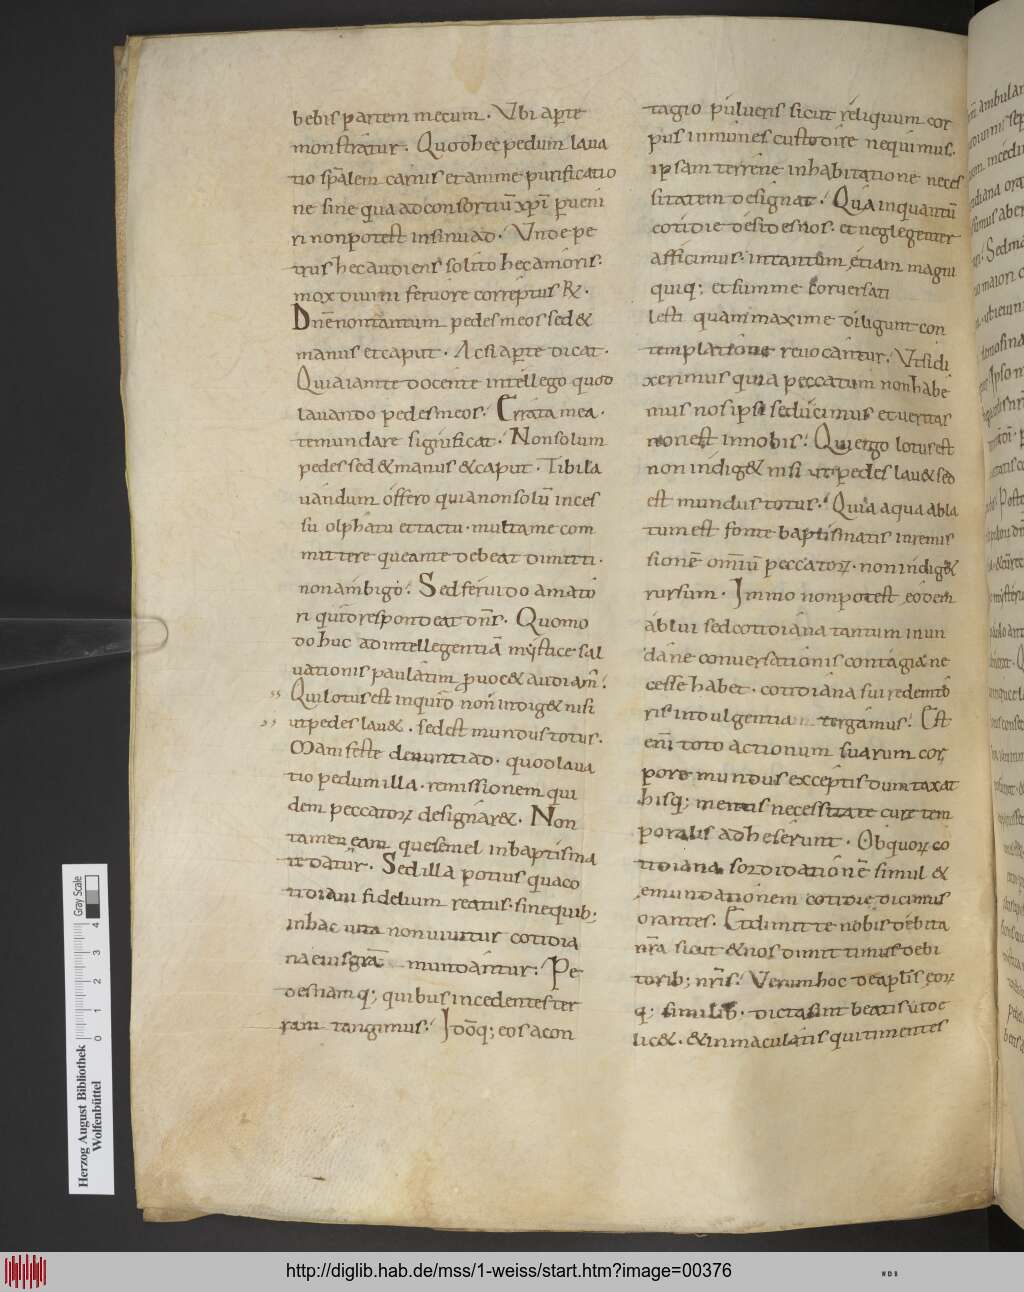 bebis partem mecum. Ubi aperte
monstratur. Quod hec pedum lava
tio spalem carnis et anime purificatio
ne sine qua ad consortiū xpi perveni
ri non potest insinuad. Unde pe
trus hec audiens solito hec amoris.
mox divini fervore correptus R.
Dnē non tantum pedes meos sed &
manus et caput. Ac si aperte dicat.
Quia iam te docente intellego quod
lavando pedes meos. Errata mea.
te mundare significat. Non solum
pedes sed & manus & caput. Tibi la
vandum offero quia non solū inces
su olphatu et tactu. multa me com
mittere que a te debeat dimitti.
non ambigo. Sed fervido amato
ri quid respondeat dns. Quomo
do huc ad intellegentiā mystice sal
vationis paulatim provoc& audiam.
Qui lotus est inquid non indig& nisi
ut pedes lav&. sed est mundus totus.
Manifeste denuntiad. quod lava
tio pedum illa. remissionem qui
dem peccatorum designar&. Non
tamen eam que semel in baptisma
te datur. Sed illa potius qua co
tidiani fidelium reatus. sine quib;
in hac vita non vivitur cotidia
na eius gra mundantur. Pe
des namq; quibus incedentes ter
ram tangimus. Idoq; eos a con
tagio pulveris sicut reliquum cor
pus inmunes custodire nequimus.
ipsam terrene inhabitatione neces
sitatem designat. Qua in quantū
cotidie desides nos. et neglegenter
afficimus. in tantum etiam magni
quiq; et summe conversati
lesti quam maxime diligunt con
templatione revocantur. Ut si di
xerimus quia peccatum non habe
mus nos ipsi seducimus et veritas
non est in nobis. Qui ergo lotus est
non indig& nisi ut pedes lav& sed
est mundus totus. Quia aqua abla
tum est fonte baptismatis in remis
sionē omīū peccatorum. non indig&
rursum. Immo non potest eodem
ablui sed cotidiana tantum in mun
dane conversationis contagia ne
cesse habet. cotidiana sui redempto
ris indulgentia tergamus. Est
enī toto actionum suarum cor
pore mundus exceptis dumtaxat
hisq; mentis necessitate cure tem
poralis adheserunt. Ob quorum co
tidiana sordidationē simul &
emundationem cotidie dicimus
orantes. Et dimitte nobis debita
nra sicut & nos dimittimus debi
torib; nris. Verum hoc de aplis eor
q; similib. dictasint beatis utoe
lic&. & inmaculatis qui timentes
Herzog August Bibliothek
Wolfenbüttel
Gray Scale
0 1 2 3 4
http://diglib.hab.de/mss/1-weiss/start.htm?image=00376